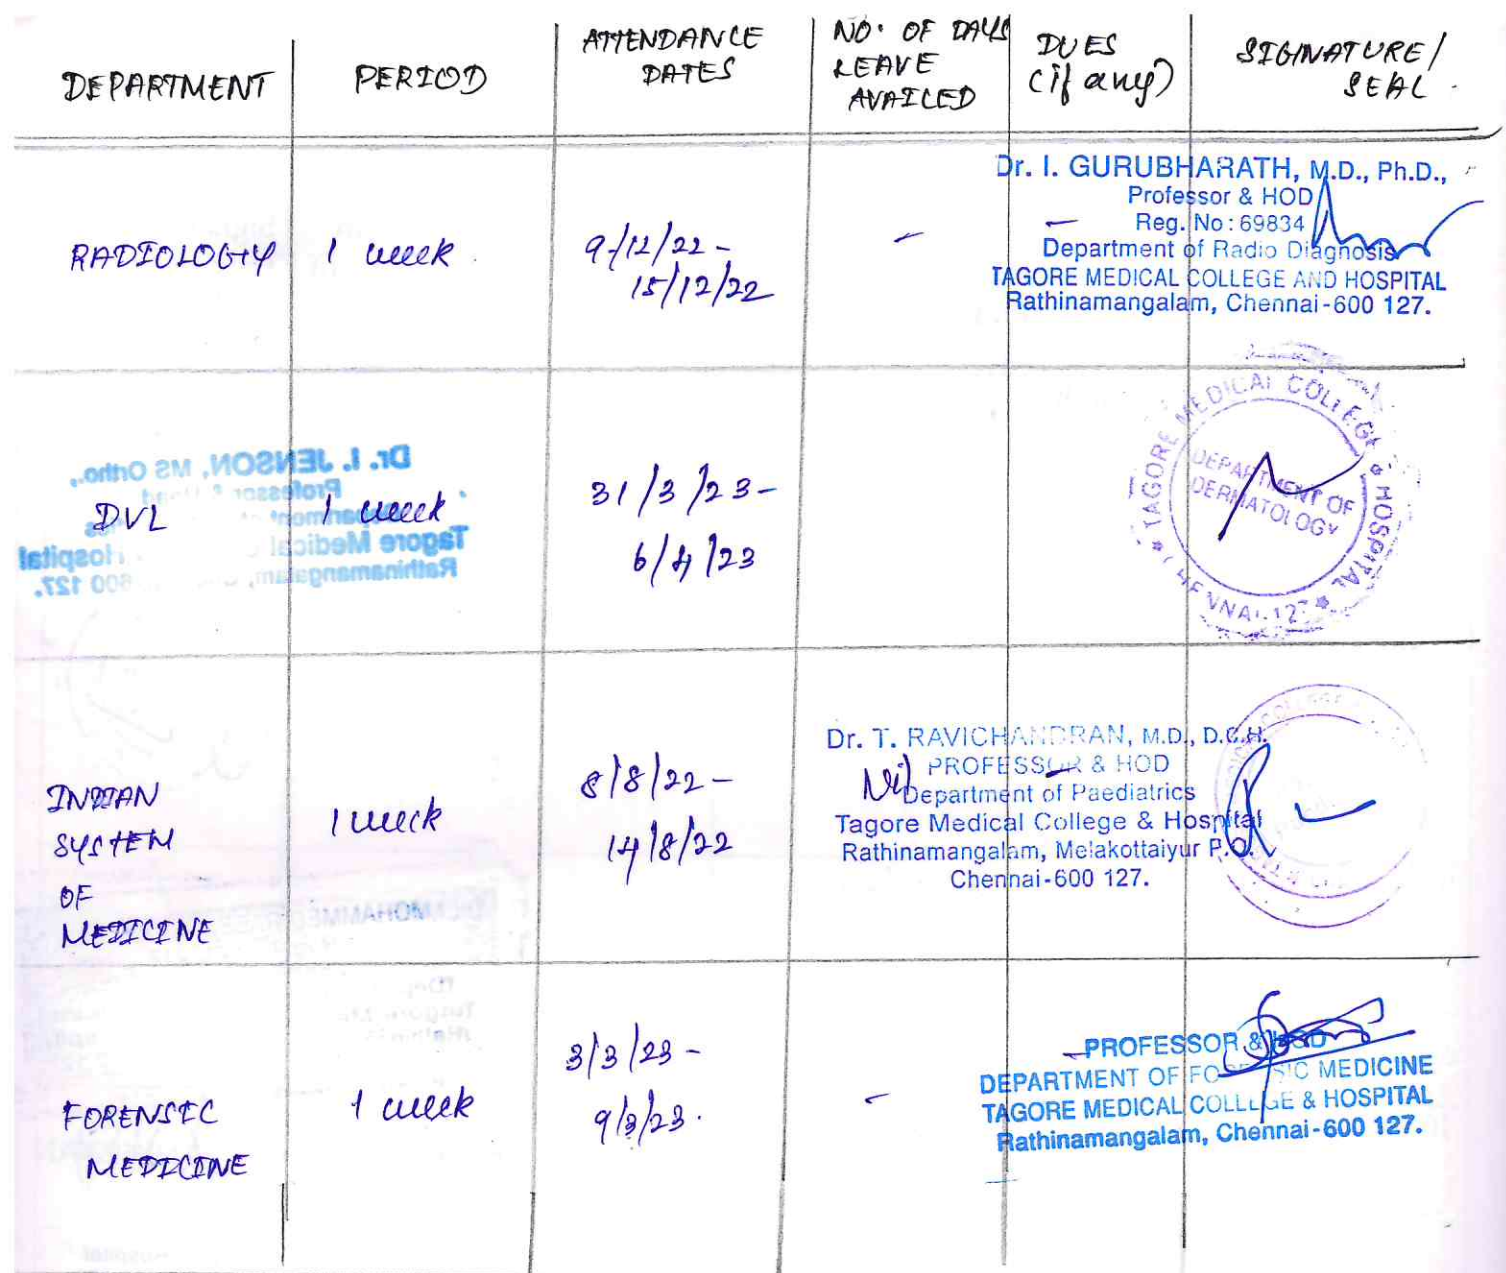 DEPARTMENT
PERIOD
ATTENDANCE
DATES
NO. OF DAYS
LEAVE
AVAILED
DUES
(if any)
SIGINATURE/
SEAL
RADIOLOGY
1 week
9/12/22 -
15/12/22
-
-
Dr. I. GURUBHARATH, M.D., Ph.D.,
Professor & HOD
Reg. No : 69834
Department of Radio Diagnosis
TAGORE MEDICAL COLLEGE AND HOSPITAL
Rathinamangalam, Chennai-600 127.
DVL
1 week
31/3/23-
6/4/23
TAGORE MEDICAL COLLEGE & HOSPITAL
DEPARTMENT OF
DERMATOLOGY
CHENNAI-127
Dr. I. JENSON, MS Ortho.,
Professor & Head
Tagore Medical
Hospital
Rathinamangalam,
600 127.
INDIAN
SYSTEM
OF
MEDICINE
1 week
8/8/22 -
14/8/22
Nil
-
Dr. T. RAVICHANDRAN, M.D., D.C.H.
PROFESSOR & HOD
Department of Paediatrics
Tagore Medical College & Hospital
Rathinamangalam, Melakottaiyur P.O.
Chennai-600 127.
FORENSIC
MEDICINE
1 week
3/3/23 -
9/3/23.
-
-
PROFESSOR & HOD
DEPARTMENT OF FORENSIC MEDICINE
TAGORE MEDICAL COLLEGE & HOSPITAL
Rathinamangalam, Chennai-600 127.